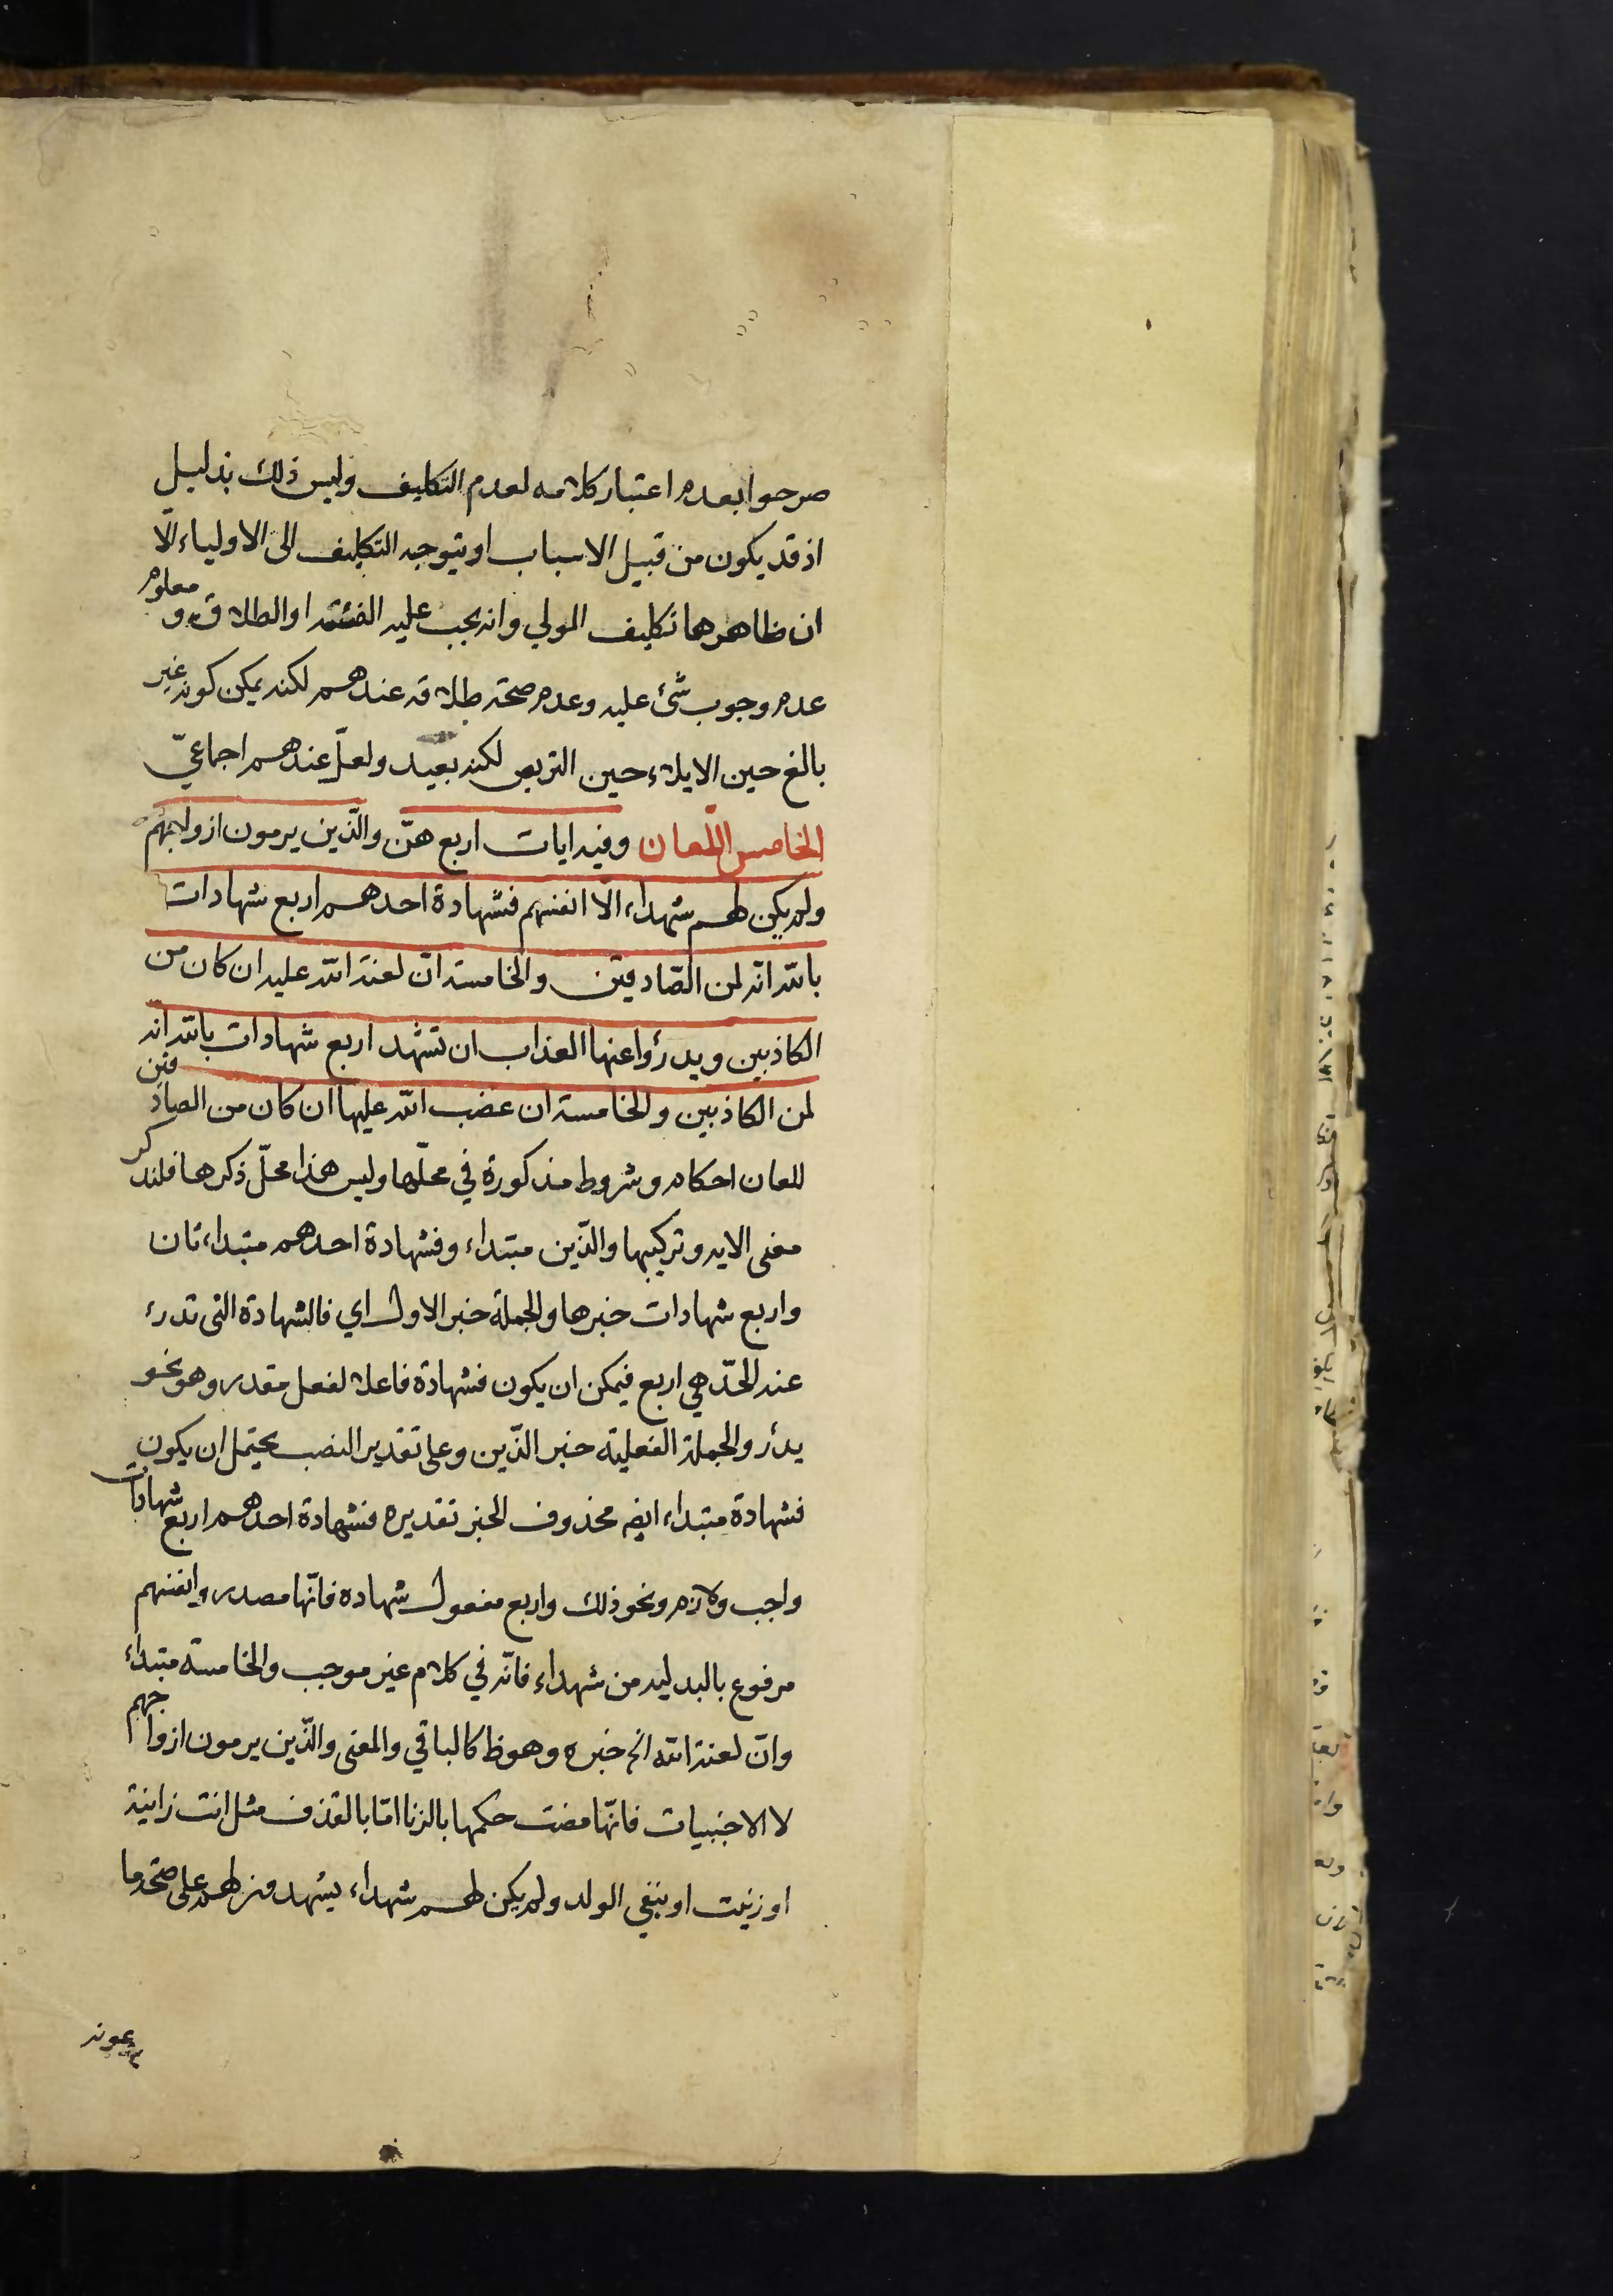 صرحوا بعدم اعتبار كلامه لعدم التكليف وليس ذلك بذليل
اذ قد يكون من قبيل الاسباب او يتوجه التكليف الى الاولياء الّا
ان ظاهرها تكليف المولي وانه يجب عليه الفئة او الطلاق و معلوم
عدم وجوب شئ عليه وعدم صحة طلاقه عندهم لكنه يمكن كونه غير
بالغ حين الايلاء حين التربص لكنه بعيد ولعلّ عندهم اجماعيّ
الخامس اللّعان وفيه ايات اربع هنّ والّذين يرمون ازواجهم
ولم يكن لهم شهداء الّا انفسهم فشهادة احدهم اربع شهادات
بالله انّه لمن الصّادقين والخامسة انّ لعنة الله عليه ان كان من
الكاذبين ويدرؤا عنها العذاب ان تشهد اربع شهادات بالله انه
لمن الكاذبين والخامسة ان غضب الله عليها ان كان من الصادقين
للعان احكام وشروط مذكورة في محلّها وليس هذا محلّ ذكرها فلنذكر
معنى الايه وتركيبها والّذين مبتداء وفشهادة احدهم مبتداء ثان
واربع شهادات خبرها والجملة خبر الاول اي فالشهادة التى تدرء
عند الحدّ هي اربع فيمكن ان يكون فشهادة فاعلا لفعل مقدر وهو نحو
يدأر والجملة الفعلية خبر الذّين وعلى تقدير النصب يحتمل ان يكون
فشهادة مبتداء ايضه محذوف الخبر تقديره فشهادة احدهم اربع شهادات
واجب ولازم ونحو ذلك واربع مفعول شهاده فانّها مصدر وانفسهم
مرفوع بالبدليه من شهداء فانّه في كلام غير موجب والخامسة مبتداء
وانّ لعنة الله الخ خبره وهو ظ كالباقي والمعنى والّذين يرمون ازواجهم
لا الاجنبيات فانّها مضت حكمها بالزنا امّا بالقذف مثل انت زانية
او زنيت او بنفي الولد ولم يكن لهم شهداء يشهدون لهم على صحة ما
يدعونه